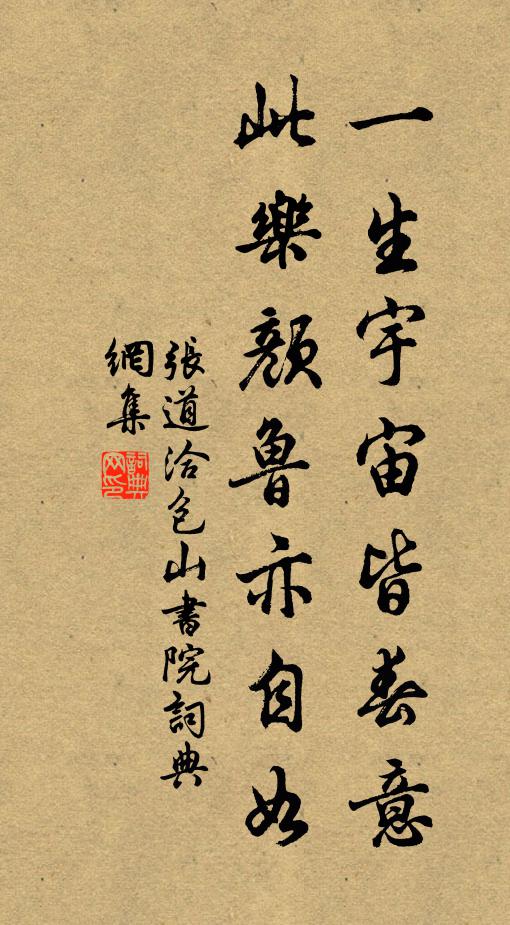 一生宇宙皆春意
此樂顏魯亦自如
張道洽包山書院詞典
網集
詞典網印